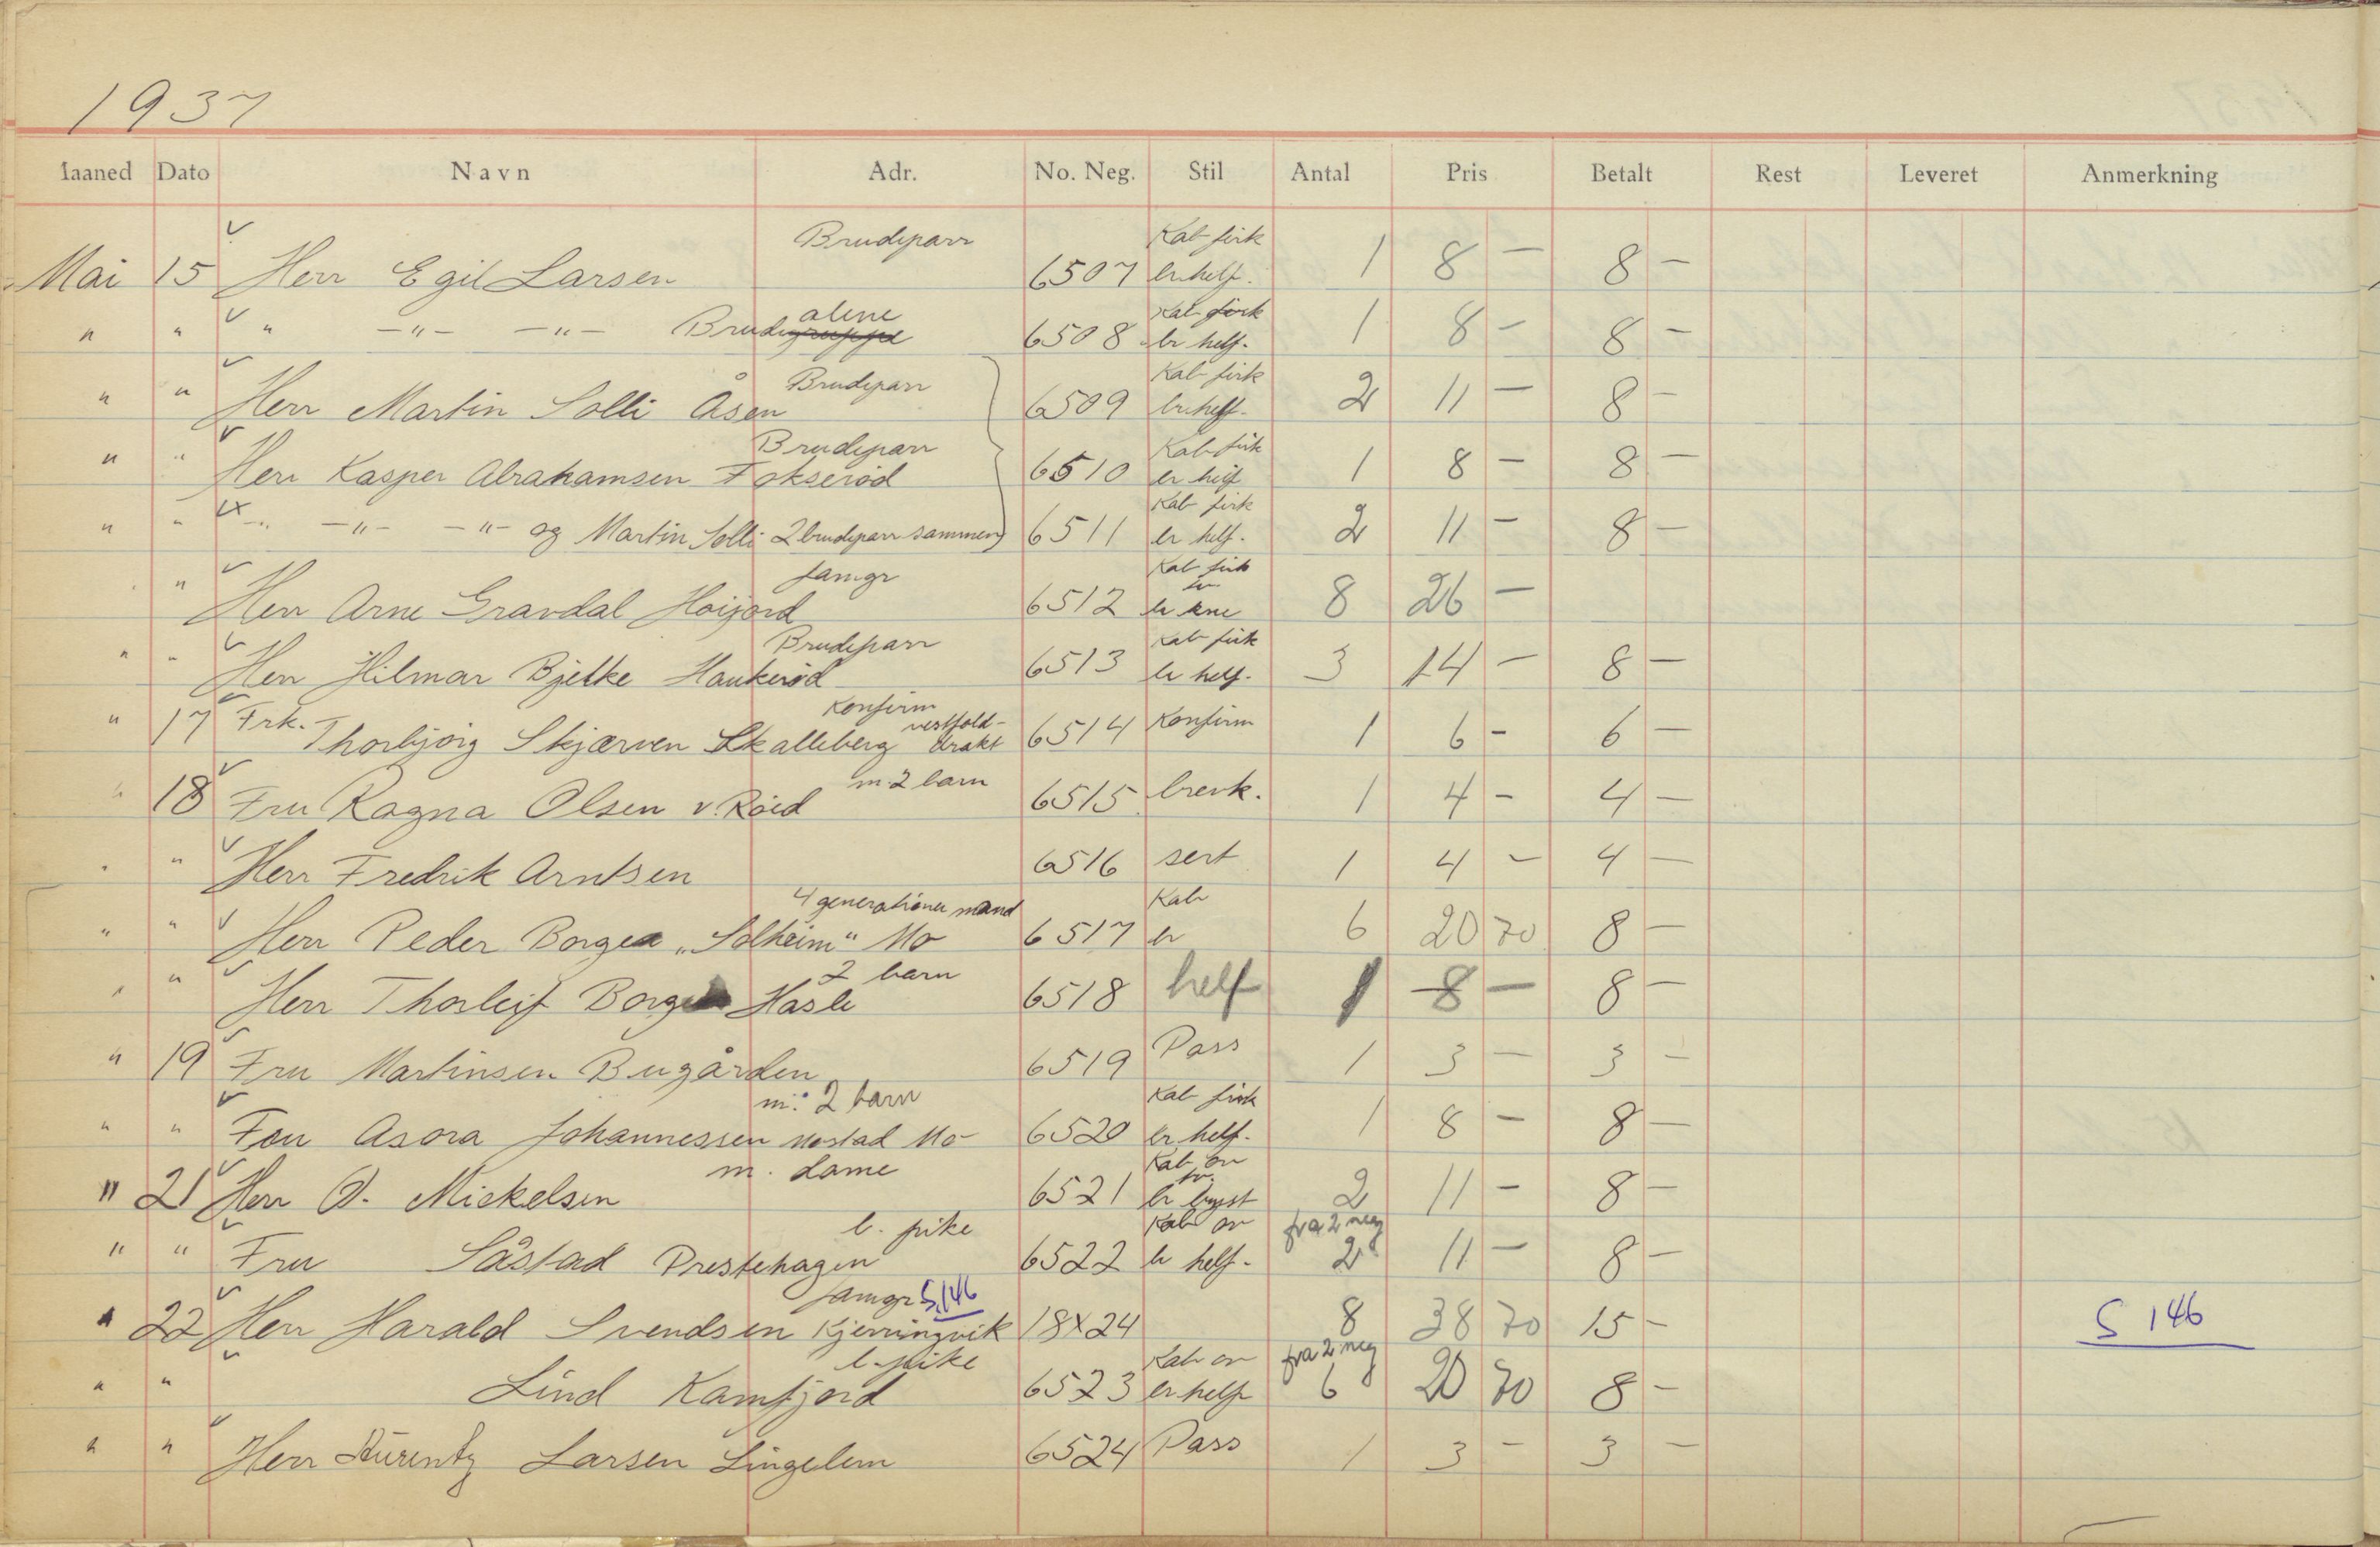 1937
Maaned Dato Navn Adr. No. Neg. Stil Antal Pris Betalt Rest Leveret Anmerkning
Brudeparr Kab firk
Mai 15 Herr Egil Larsen 6507 br. helf. 1 8 — 8 —
alene Kab firk
" " " —"— —"— Brudegruppe 6508 br helf. 1 8 — 8 —
Brudeparr Kab firk
" " Herr Martin Solli Åsen 6509 br. helf. 2 11 — 8 —
Brudeparr Kab firk
" " Herr Kasper Abrahamsen Fokserød 6510 br helf 1 8 — 8 —
Kab firk
" " —"— —"— —"— og Martin Solli 2 brudeparr sammen 6511 br helf. 2 11 — 8 —
famgr Kab firk
" Herr Arne Gravdal Høijord 6512 br kne 8 26 —
Brudeparr Kab firk
" " Herr Hilmar Bjelke Haukerød 6513 br helf. 3 14 — 8 —
Konfirm
vestfold-
" 17 Frk. Thorbjørg Skjærven Skalleberg drakt 6514 Konfirm 1 6 — 6 —
m. 2 barn
" 18 Fru Ragna Olsen v. Røed 6515 brevk. 1 4 — 4 —
" " Herr Fredrik Arntsen 6516 sert 1 4 — 4 —
4 generationer mand Kab
" " Herr Peder Borgen "Solheim" Mo 6517 br 6 20 70 8 —
2 barn
" " Herr Thorleif Borgen Hasle 6518 helf 1 8 — 8 —
" 19 Fru Martinsen Bugården 6519 Pass 1 3 — 3 —
m. 2 barn Kab firk
" " Fru Asora Johannessen Mostad Mo 6520 br helf. 1 8 — 8 —
m. dame Kab ov
" 21 Herr O. Mickelsen 6521 br byst 2 11 — 8 —
l. pike Kab ov fra 2 neg
" " Fru Såstad Prestehagen 6522 br helf. 2 11 — 8 —
famgr S.146
" 22 Herr Harald Svendsen Kjerringvik 18x24 8 38 70 15 — S 146
l. pike Kab ov fra 2 neg
" " Lind Kamfjord 6523 br helf 6 20 70 8 —
" " Herr Laurentz Larsen Lingelem 6524 Pass 1 3 — 3 —